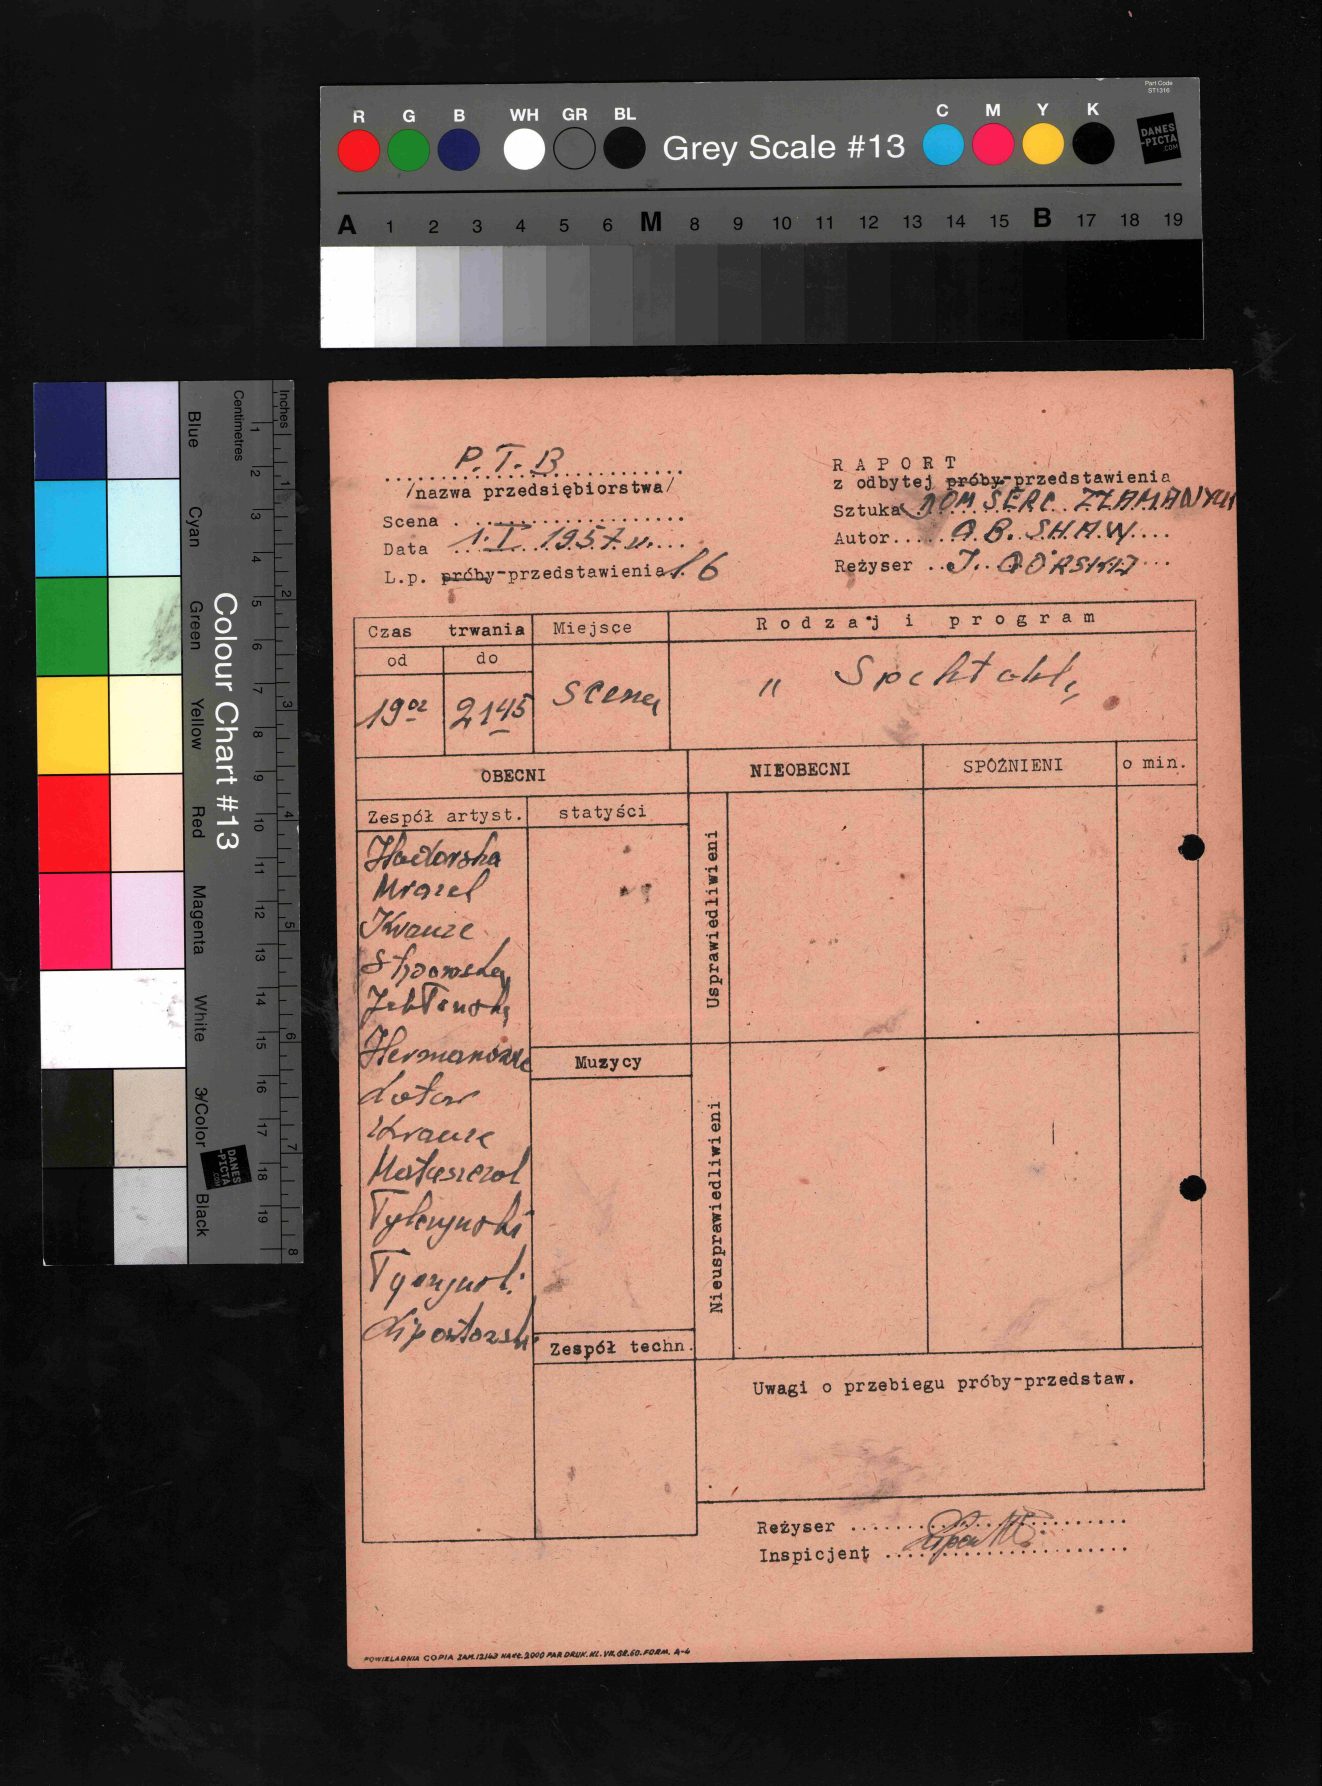 Part Code
ST1316
R G B WH GR BL Grey Scale #13 C M Y K
DANES
-PICTA
.COM
A 1 2 3 4 5 6 M 8 9 10 11 12 13 14 15 B 17 18 19
Colour Chart #13
Blue Cyan Green Yellow Red Magenta White 3/Color Black
Centimetres 1 2 3 4 5 6 7 8 9 10 11 12 13 14 15 16 17 18 19
Inches 1 2 3 4 5 6 7 8
DANES
-PICTA
.COM
P.T.B.
/nazwa przedsiębiorstwa/
Scena
Data 1.I 1957 r.
L.p. próby-przedstawienia 16
RAPORT
z odbytej próby-przedstawienia
Sztuka DOM SERC ZŁAMANYCH
Autor G.B. SHAW
Reżyser I. GÓRSKIJ
Czas trwania Miejsce Rodzaj i program
od do
19 02 21 45 scena " Spektakl
OBECNI NIEOBECNI SPÓŹNIENI o min.
Zespół artyst. statyści
Usprawiedliwieni
Mrozek
Krauze
Muzycy
Krauze
Nieusprawiedliwieni
Matuszczak
Tylczyński
Zespół techn.
Uwagi o przebiegu próby-przedstaw.
Reżyser
Inspicjent
POWIELARNIA COPIA ZAM. 12143 NAKŁ. 2000 PAP. DRUK. KL. VII. GR. 60. FORM. A-4